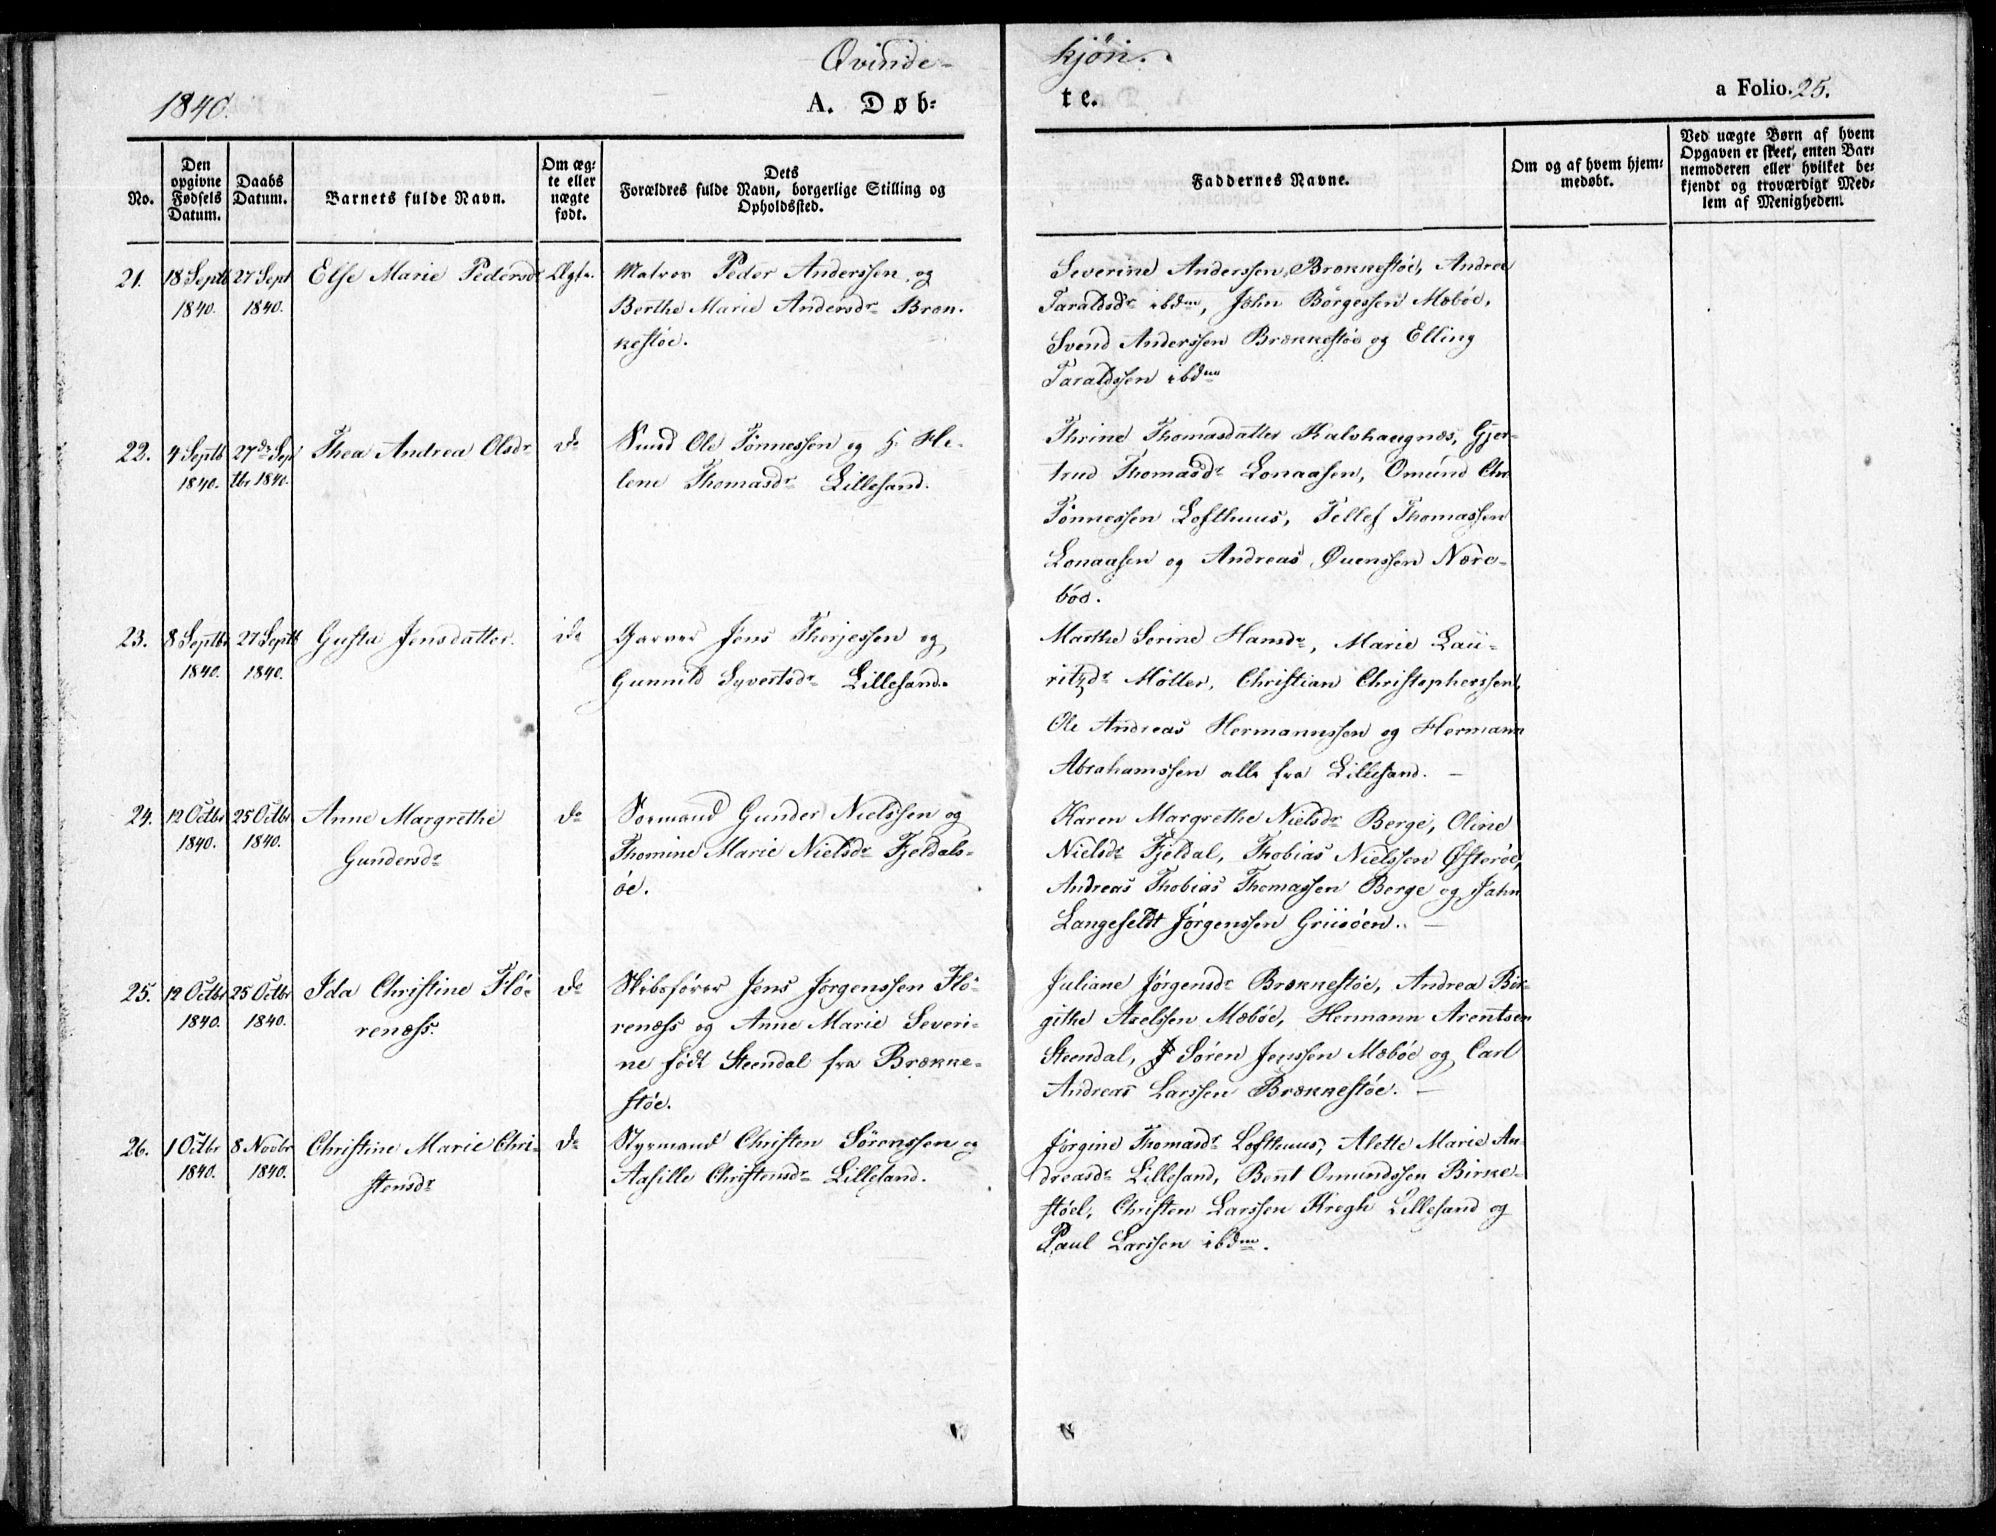 Qvinde-
kjön.
1840.
A. Døb-
te.
a Folio.
25.
No.
Den
opgivne
Fødsels
Datum.
Daabs
Datum.
Barnets fulde Navn.
Om æg-
te eller
uægte
født.
Dets
Forældres fulde Navn, borgerlige Stilling og
Opholdssted.
Faddernes Navne.
Om og af hvem hjem-
medøbt.
Ved uægte Børn af hvem
Opgaven er skeet, enten Bar-
nemoderen eller hvilket be-
kjendt og troværdigt Med-
lem af Menigheden.
21.
18 Septb
1840.
27 Sept
1840.
Else Marie Pedersdr
Ægte.
Matros Peder Anderssen og
Berthe Marie Andersdr Bræn-
kestöe.
Severine Anderssen Brækkestöe, Andrea
Taraldsdr ibdm, John Börgessen Mæböe,
Svend Anderssen Brækkestöe og Elling
Taraldssen ibdm
22.
4 Septb
1840.
27de Sep
tbr 1840.
Thea Andrea Olsdr
do
Smed Ole Tönnessen og H. He-
lene Thomasdr Lillesand.
Thrine Thomasdatter Kalvhaugnæs, Gjer-
trud Thomasdr Lonaasen, Omund Chr
Tönnessen Lofthuus, Tellef Thomassen
Lonaasen og Andreas Øuenssen Nære-
böe.
23.
8 Septbr
1840.
27 Septb
1840.
Gusta Jensdatter.
do
Garver Jens Therjessen og
Gunnild Syvertsdr Lillesand.
Marthe Serine Hansdr, Marie Lau-
ritzdr Möller, Christian Christopherssen,
Ole Andreas Hermannssen og Hermann
Abrahamssen alle fra Lillesand. —
24.
12 Octbr
1840.
25 Octbr
1840.
Anne Margrethe
Gundersdr
do
Sormand Gunder Nielssen og
Thomine Marie Nielsdr Fjeldals-
öe.
Karen Margrethe Nielsdr Berge, Oline
Nielsdr Fjeldal, Thobias Nielssen Østeröe,
Andreas Thobias Thomassen Berge og Jahn
Langefeldt Jörgenssen Griisöen. —
25.
12 Octbr
1840.
25 Octbr
1840.
Ida Christine Flö-
renæss.
do
Skibsförer Jens Jörgenssen Flö-
renæss og Anne Marie Severi-
ne födt Steendal fra Brække-
stöe.
Juliane Jörgensdr Brækkestöe, Andrea Bir-
githe Axelssen Mæböe, Hermann Arentsen
Steendal, Sören Jenssen Mæböe og Carl
Andreas Larssen Brækkestöe. —
26.
1 Octbr
1840.
8 Novbr
1840.
Christine Marie Chri-
stensdr
do
Styrmand Christen Sörenssen og
Aasille Christensdr Lillesand.
Jörgine Thomasdr Lofthuus, Alette Marie An-
dreasdr Lillesand, Bent Omundssen Birke-
stöel, Christen Larssen Kregh Lillesand og
Paul Larssen ibdm.